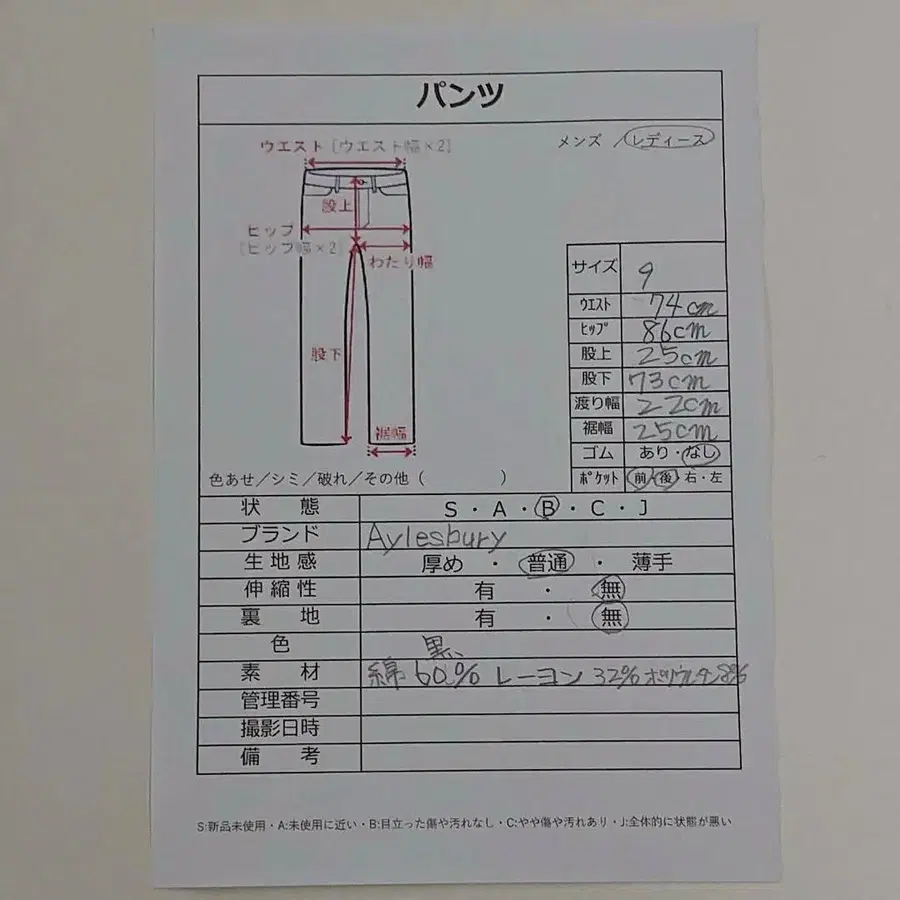 パンツ
メンズ / レディース
ウエスト [ウエスト幅×2]
股上
ヒップ
[ヒップ幅×2]
わたり幅
股下
裾幅
サイズ 9
ウエスト 74cm
ヒップ 86cm
股上 25cm
股下 73cm
渡り幅 22cm
裾幅 25cm
ゴム あり・なし
ポケット 前・後 右・左
色あせ/シミ/破れ/その他 ( )
状 態 S・A・B・C・J
ブランド Aylesbury
生地感 厚め ・ 普通 ・ 薄手
伸縮性 有 ・ 無
裏 地 有 ・ 無
色 黒、
素 材 綿 60% レーヨン 32% ポリウレタン 8%
管理番号
撮影日時
備 考
S:新品未使用・A:未使用に近い・B:目立った傷や汚れなし・C:やや傷や汚れあり・J:全体的に状態が悪い